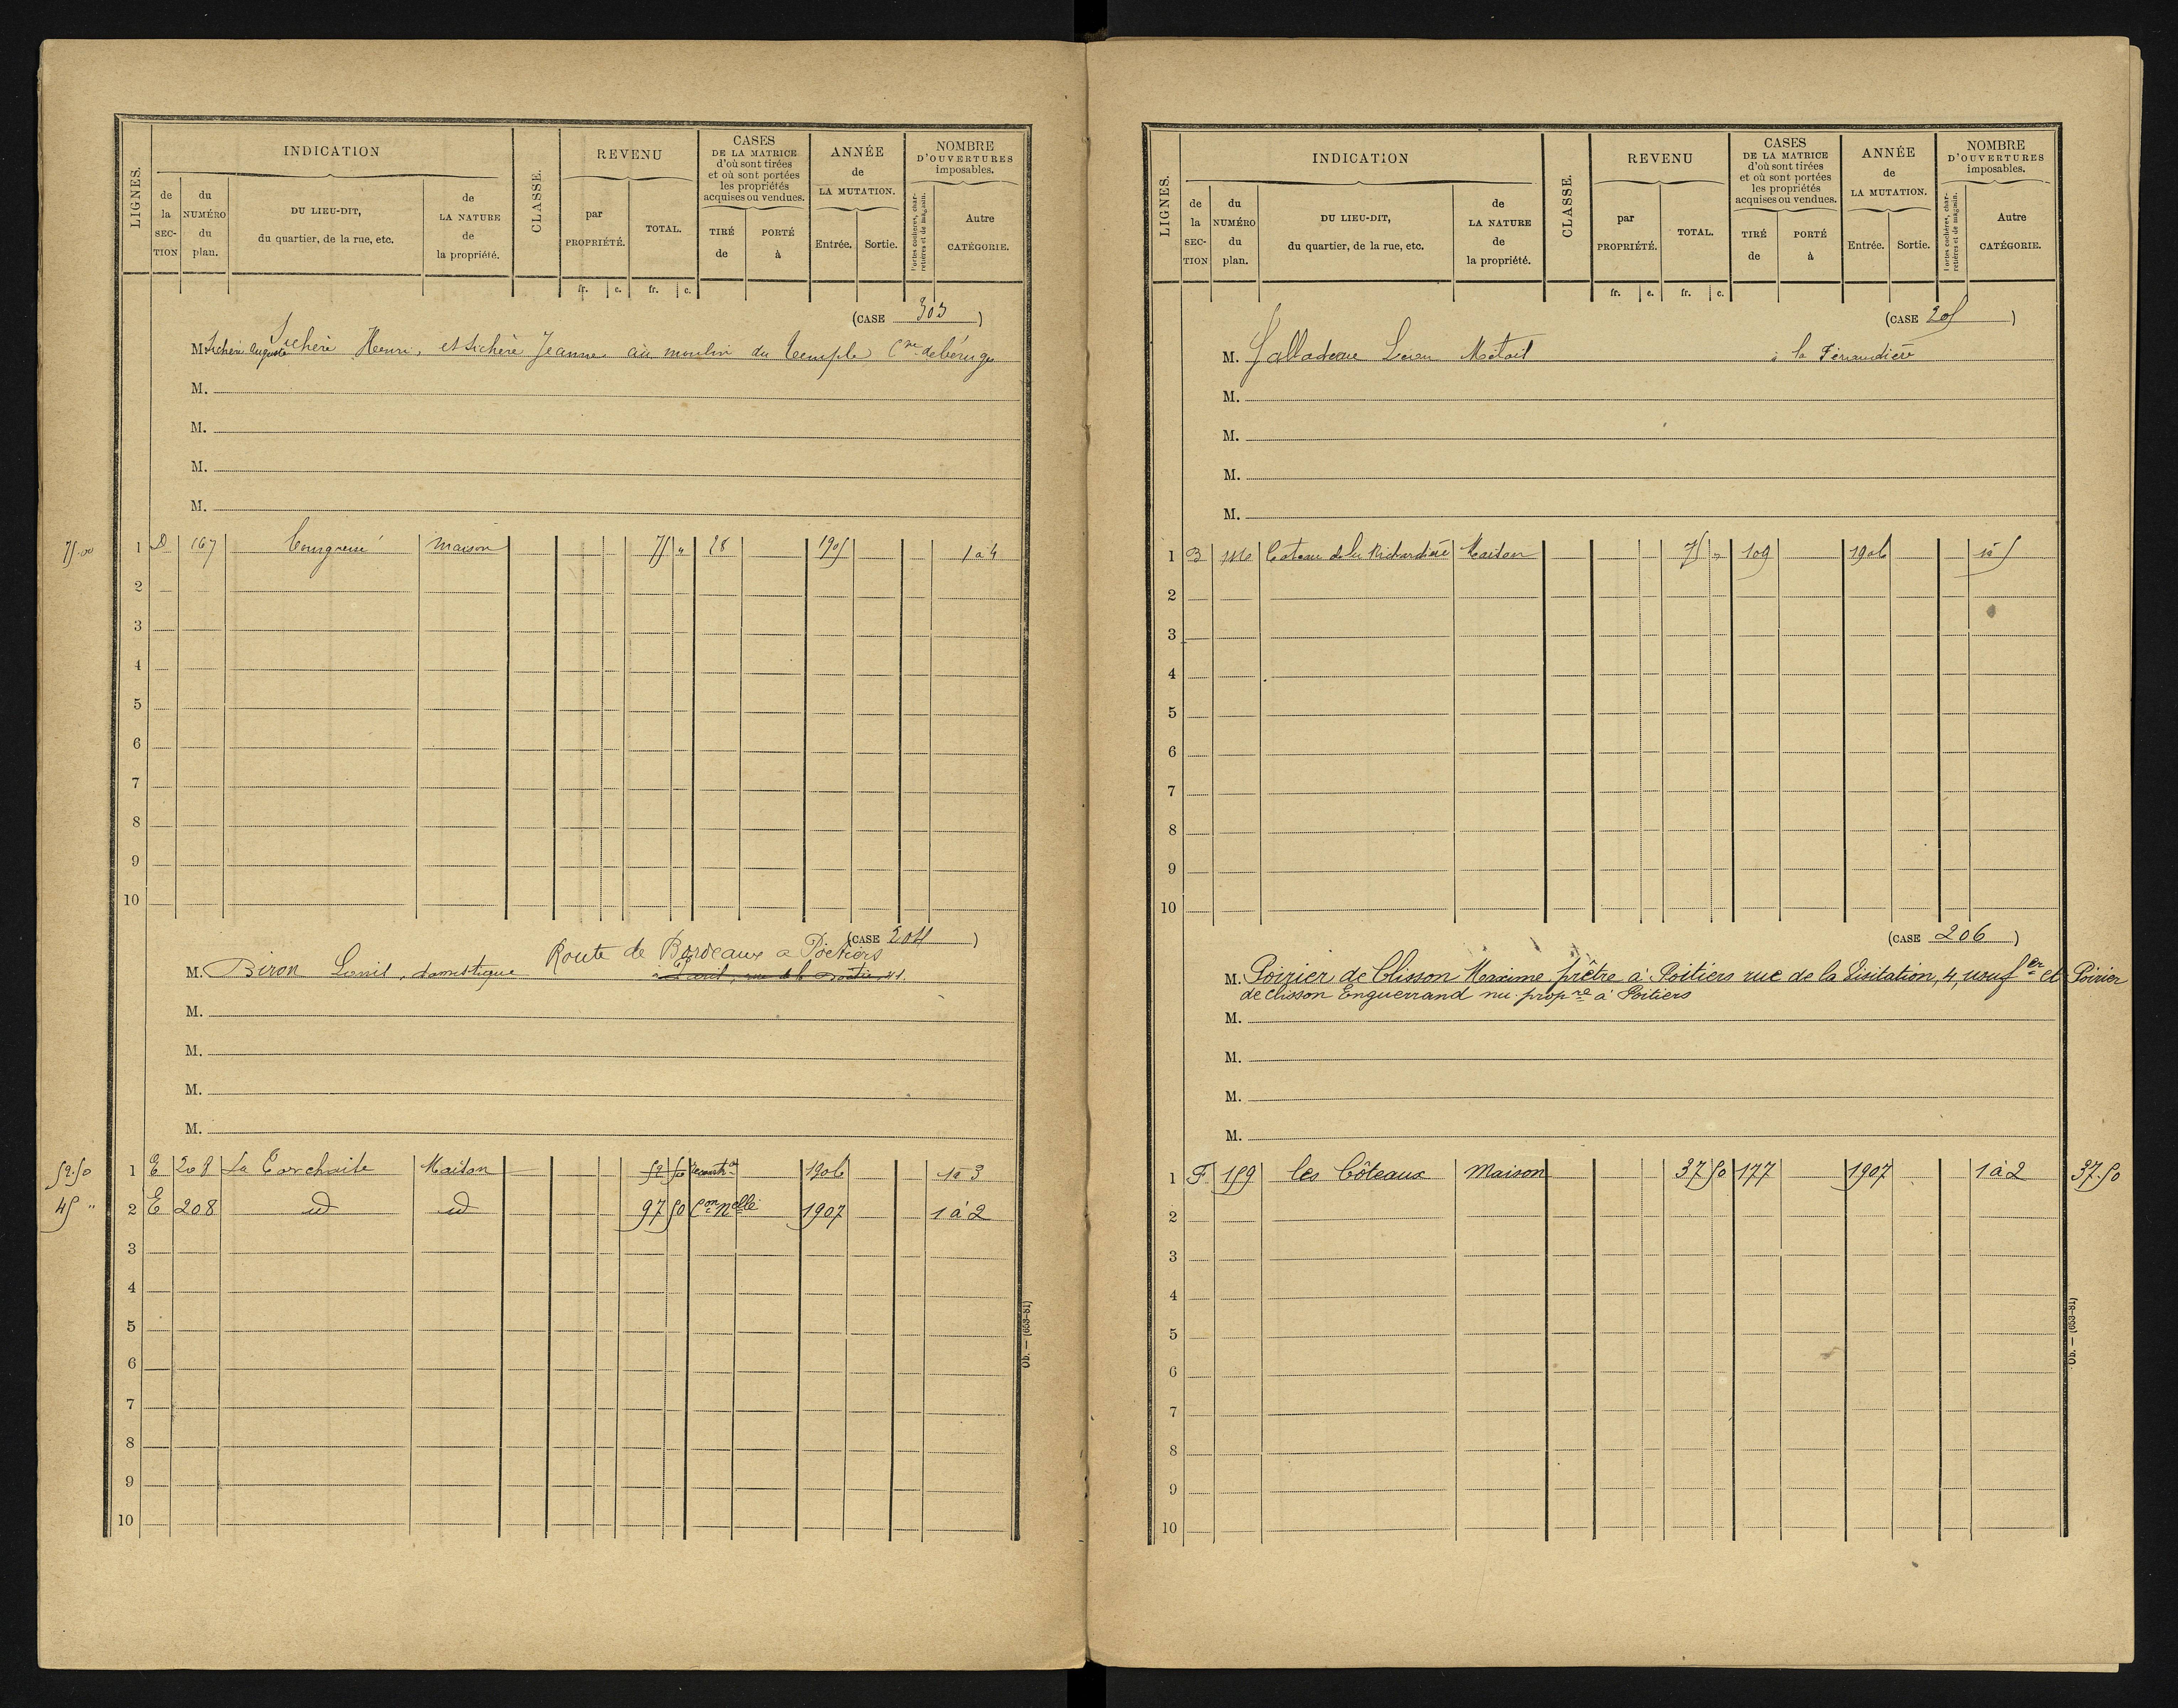 LIGNES.
INDICATION
de la SECTION
du NUMÉRO du plan.
DU LIEU-DIT, du quartier, de la rue, etc.
de LA NATURE de la propriété.
CLASSE.
REVENU
par PROPRIÉTÉ.
TOTAL.
CASES DE LA MATRICE d'où sont tirées et où sont portées les propriétés acquises ou vendues.
TIRÉ de
PORTÉ à
ANNÉE de LA MUTATION.
Entrée.
Sortie.
NOMBRE D'OUVERTURES imposables.
Portes cochères, charretières et de magasin.
Autre CATÉGORIE.
fr. c. fr. c.
(CASE 303)
M. Sicheré Auguste Sicheré Henri, et Sicheré Jeanne au moulin du Temple Cne de béruges
M.
M.
M.
M.
75.00 1 D 167 maison 75 " 28 1905 1 à 4
2
3
4
5
6
7
8
9
10
(CASE 204)
Route de Bordeaux a Poitiers
M. Biron Louis, domestique à Paris, rue de la
M.
M.
M.
M.
52.50 1 E 208 La Maison 52 50 1906 1 à 3
45 " 2 E 208 id id 97 50 Con Nelle 1907 1 à 2
3
4
5
6
7
8
9
10
Ob. — (653-81)
LIGNES.
INDICATION
de la SECTION
du NUMÉRO du plan.
DU LIEU-DIT, du quartier, de la rue, etc.
de LA NATURE de la propriété.
CLASSE.
REVENU
par PROPRIÉTÉ.
TOTAL.
CASES DE LA MATRICE d'où sont tirées et où sont portées les propriétés acquises ou vendues.
TIRÉ de
PORTÉ à
ANNÉE de LA MUTATION.
Entrée.
Sortie.
NOMBRE D'OUVERTURES imposables.
Portes cochères, charretières et de magasin.
Autre CATÉGORIE.
fr. c. fr. c.
(CASE 205)
M. à la
M.
M.
M.
M.
1 B Coteau de la Richardière Maison 75 " 109 1906 1 à 5
2
3
4
5
6
7
8
9
10
(CASE 206)
M. Poirier de Clisson Maxime prêtre à Poitiers rue de la Visitation, 4, usufer et Poirier
de Clisson Enguerrand nu propre à Poitiers
M.
M.
M.
M.
1 F 159 les Côteaux maison 37 50 177 1907 1 à 2 37.50
2
3
4
5
6
7
8
9
10
Ob. — (653-81)